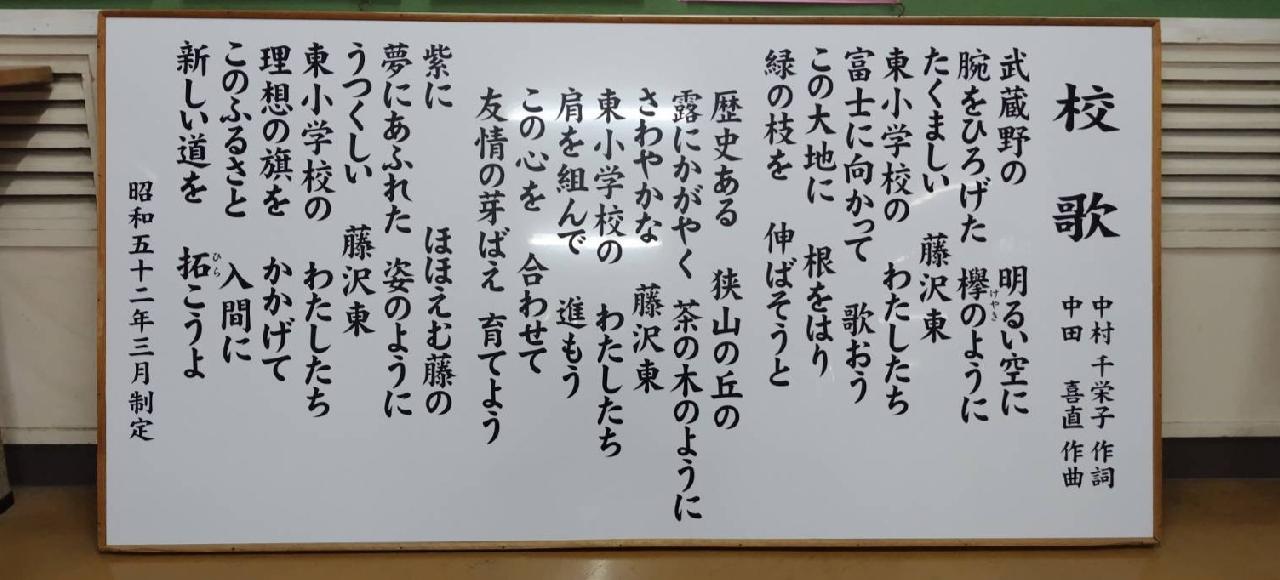 校歌
中村千栄子 作詞
中田 喜直 作曲
武蔵野の 明るい空に
腕をひろげた 欅のように
けやき
たくましい 藤沢東
東小学校の わたしたち
富士に向かって 歌おう
この大地に 根をはり
緑の枝を 伸ばそうと
歴史ある 狭山の丘の
露にかがやく 茶の木のように
さわやかな 藤沢東
東小学校の わたしたち
肩を組んで 進もう
この心を 合わせて
友情の芽ばえ 育てよう
紫に ほほえむ藤の
夢にあふれた 姿のように
うつくしい 藤沢東
東小学校の わたしたち
理想の旗を かかげて
このふるさと 入間に
新しい道を 拓こうよ
ひら
昭和五十二年三月制定